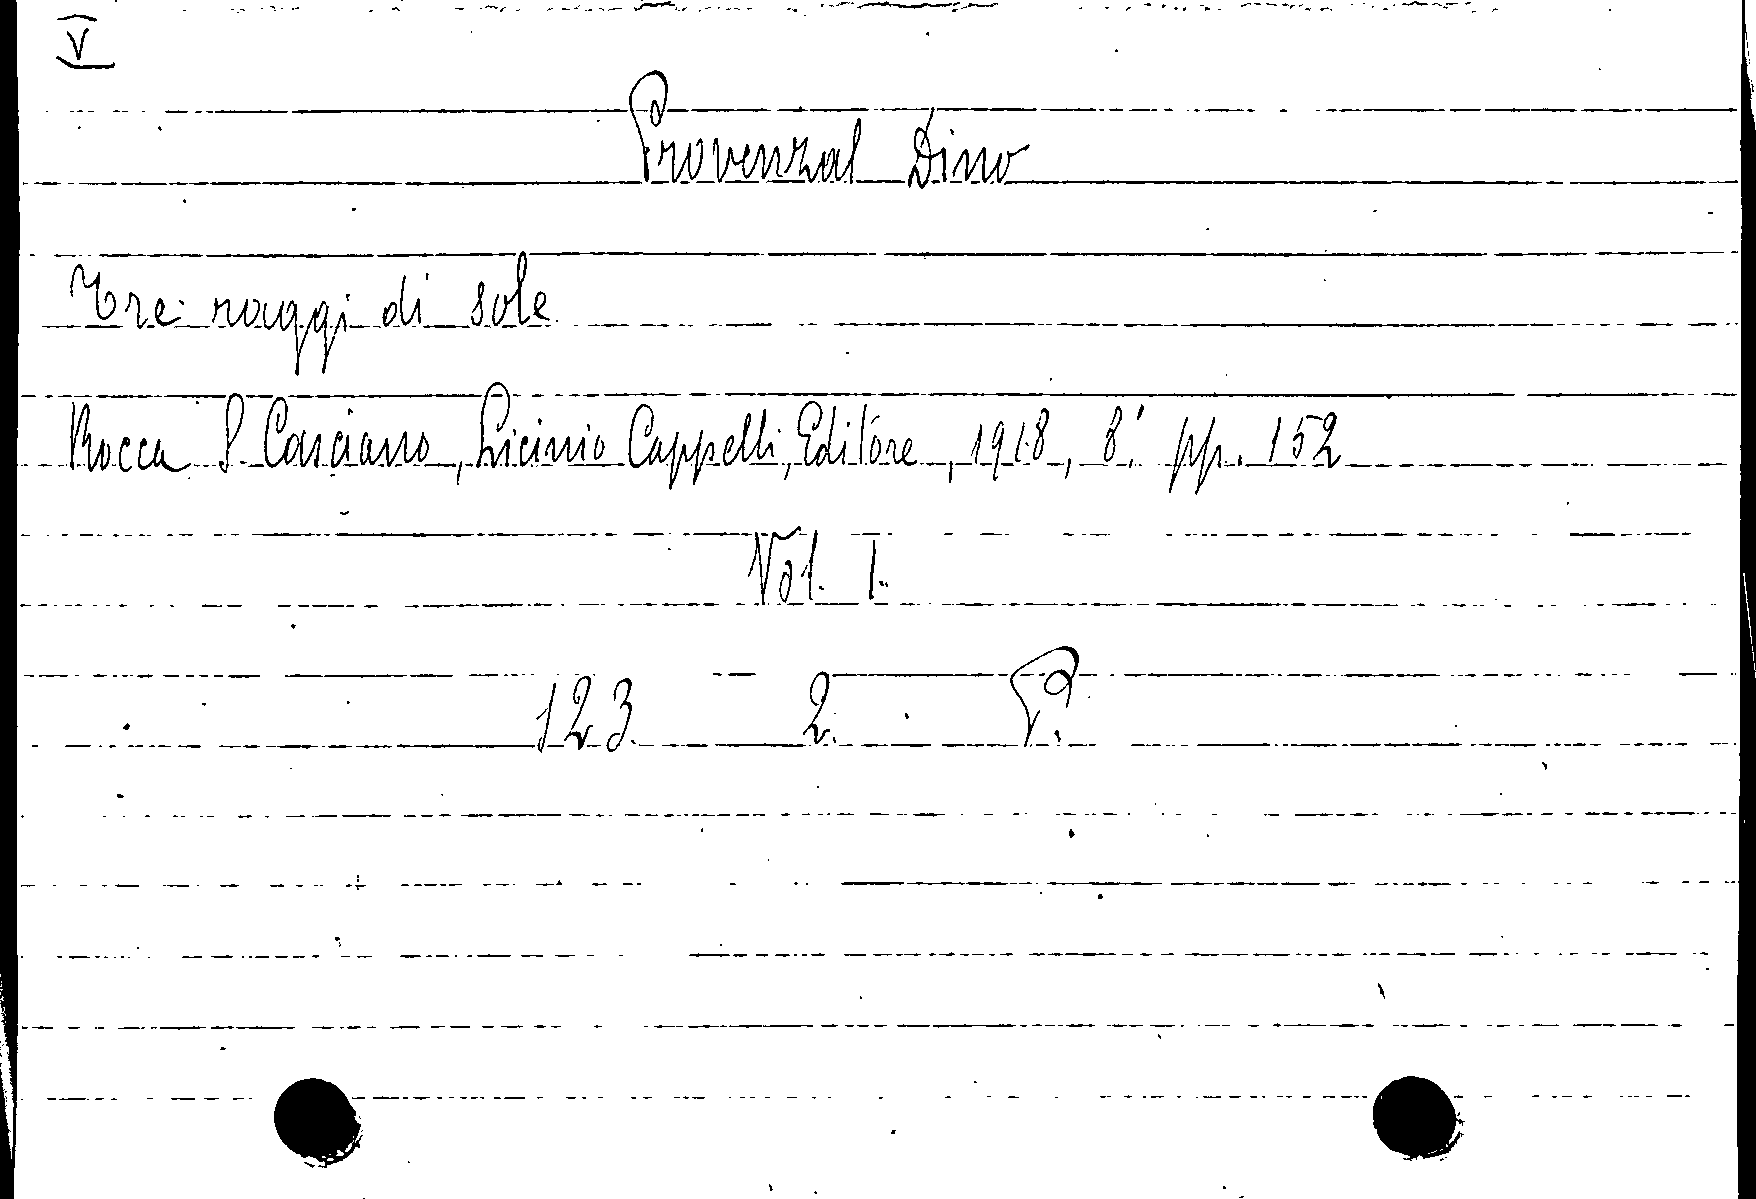 V
Provenzal Dino
Tre raggi di sole
Rocca S. Casciano, Licinio Cappelli, Editore, 1918, 8.° pp. 152
Vol. 1.
123. 2. P.